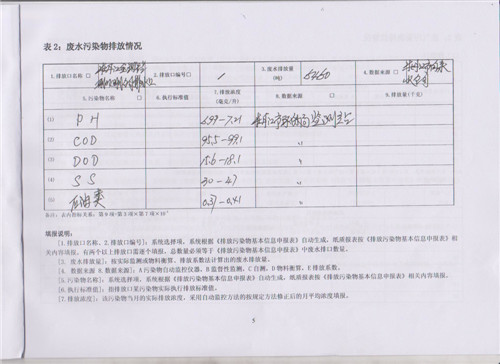 表2：废水污染物排放情况
1.排放口名称 □ 2.排放口编号□ 3.废水排放量（吨） 4.数据来源 □
5.污染物名称 □ 6.执行标准值 7.排放浓度（毫克/升） 8.数据来源 □ 9.排放量(千克)
(1) PH 6.97-7.21
(2) COD 95.5-99.1
(3) BOD 15.6-18.1
(4) SS 30-47
(5) 石油类 0.37-0.41
填报说明：
[1.排放口名称、2.排放口编号]：系统选择项，系统根据《排放污染物基本信息申报表》自动生成，纸质报表按《排放污染物基本信息申报表》相
关内容填报，有两个以上排放口需逐个填报，总数量必须等于《排放污染物基本信息申报表》中废水排口数量。
[3.废水排放量]：按实际监测或物料衡算、排放系数法计算出的废水排放量。
[4.数据来源 8.数据来源]：A污染物自动监控仪器，B监督性监测，C自测，D物料衡算，E排放系数。
[5.污染物名称]：系统选择项，系统根据《排放污染物基本信息申报表》自动生成，纸质报表按《排放污染物基本信息申报表》相关内容填报。
[6.执行标准值]：指排放口某污染物实际执行排放标准值。
[7.排放浓度]：该污染物当月的实际排放浓度，采用自动监控方法的按规定方法修正后的月平均浓度填报。
5